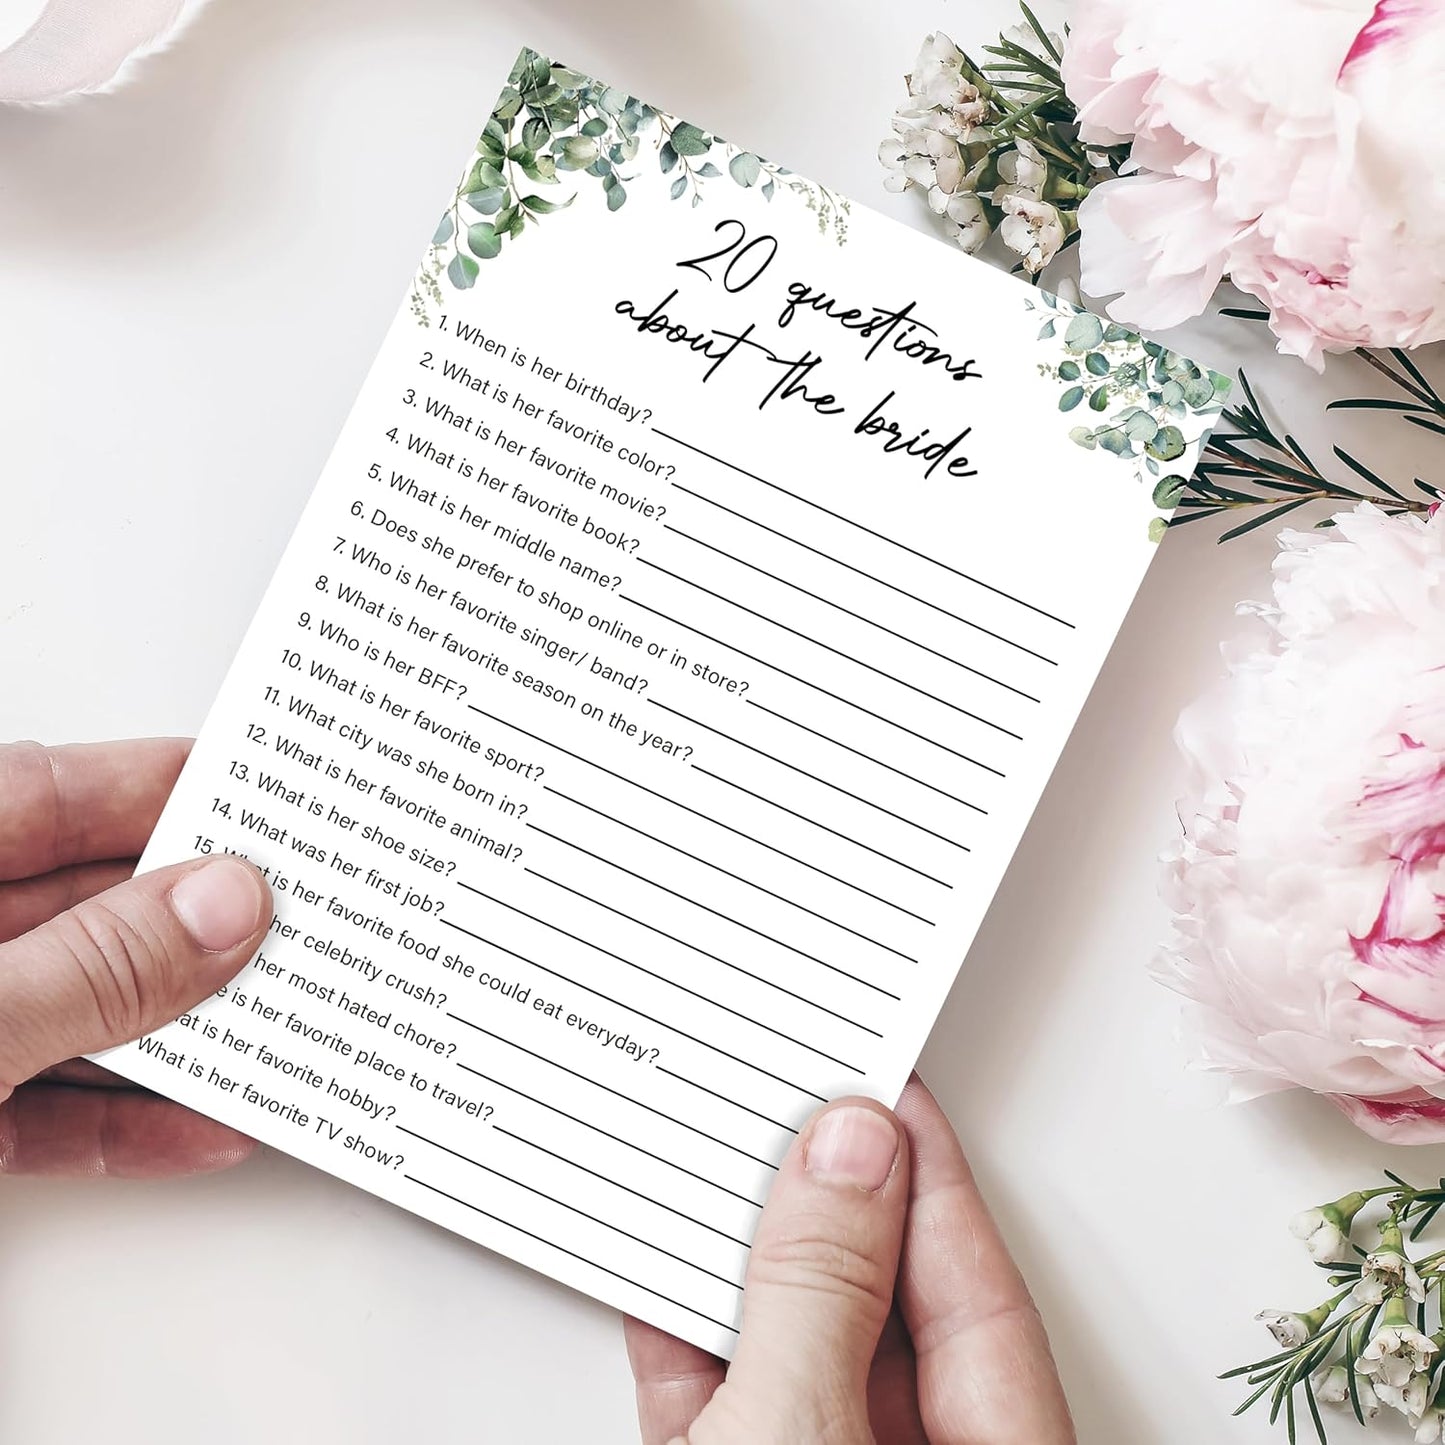 20 questions
about the bride
1. When is her birthday?
2. What is her favorite color?
3. What is her favorite movie?
4. What is her favorite book?
5. What is her middle name?
6. Does she prefer to shop online or in store?
7. Who is her favorite singer/ band?
8. What is her favorite season on the year?
9. Who is her BFF?
10. What is her favorite sport?
11. What city was she born in?
12. What is her favorite animal?
13. What is her shoe size?
14. What was her first job?
15. What is her favorite food she could eat everyday?
her celebrity crush?
her most hated chore?
is her favorite place to travel?
is her favorite hobby?
What is her favorite TV show?